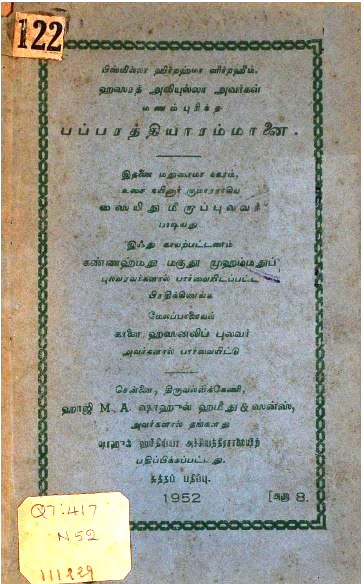 122
பிஸ்மில்லா ஹிர்றஹ்மா னிர்றஹீம்.
ஹஸரத் அலியுல்லா அவர்கள்
மணம்புரிந்த
பப்பரத்தியாரம்மானை.
இதனை மதுரைமா நகரம்,
உசன் நயினார் குமாரராகிய
ஸையிது மீருப்புலவர்
பாடியது
இஃது காயற்பட்டணம்
கண்ணஹ்மது மகுதூ முஹம்மதுப்
புலவரவர்களால் பார்வையிடப்பட்ட
பிரதிக்கிணங்க
மேலப்பாளையம்
காளை, ஹஸனலிப் புலவர்
அவர்களால் பார்வையிட்டு
சென்னை, திருவல்லிக்கேணி,
ஹாஜி M. A. ஷாஹுல் ஹமீது & ஸன்ஸ்,
அவர்களால் தங்களது
ஷாஹுல் ஹமீதிய்யா அச்சியந்திரசாலையிற்
பதிப்பிக்கப்பட்டது.
சுத்தப் பதிப்பு.
1952 [அணா 8.
Q7:417
N52
111229